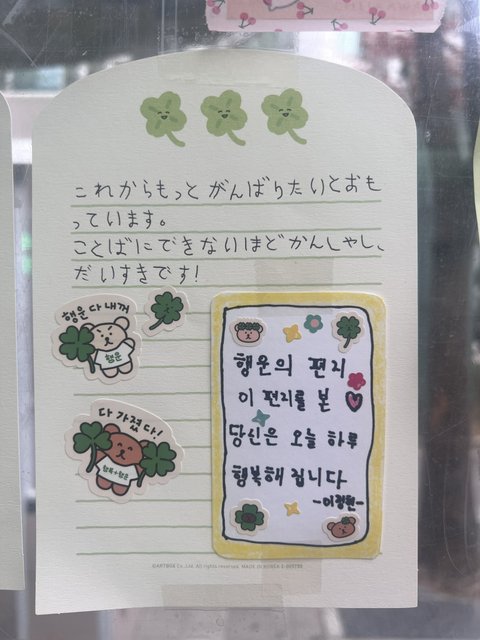 これからもっとがんばりたいとおも
っています。
ことばにできないほどかんしゃし、
だいすきです!
행운 다 내꺼
행운
다 가졌다!
행복+행운
행운의 편지
이 편지를 본
당신은 오늘 하루
행복해 집니다
-이정현-
©ARTBOX Co.,Ltd. All rights reserved. MADE IN KOREA